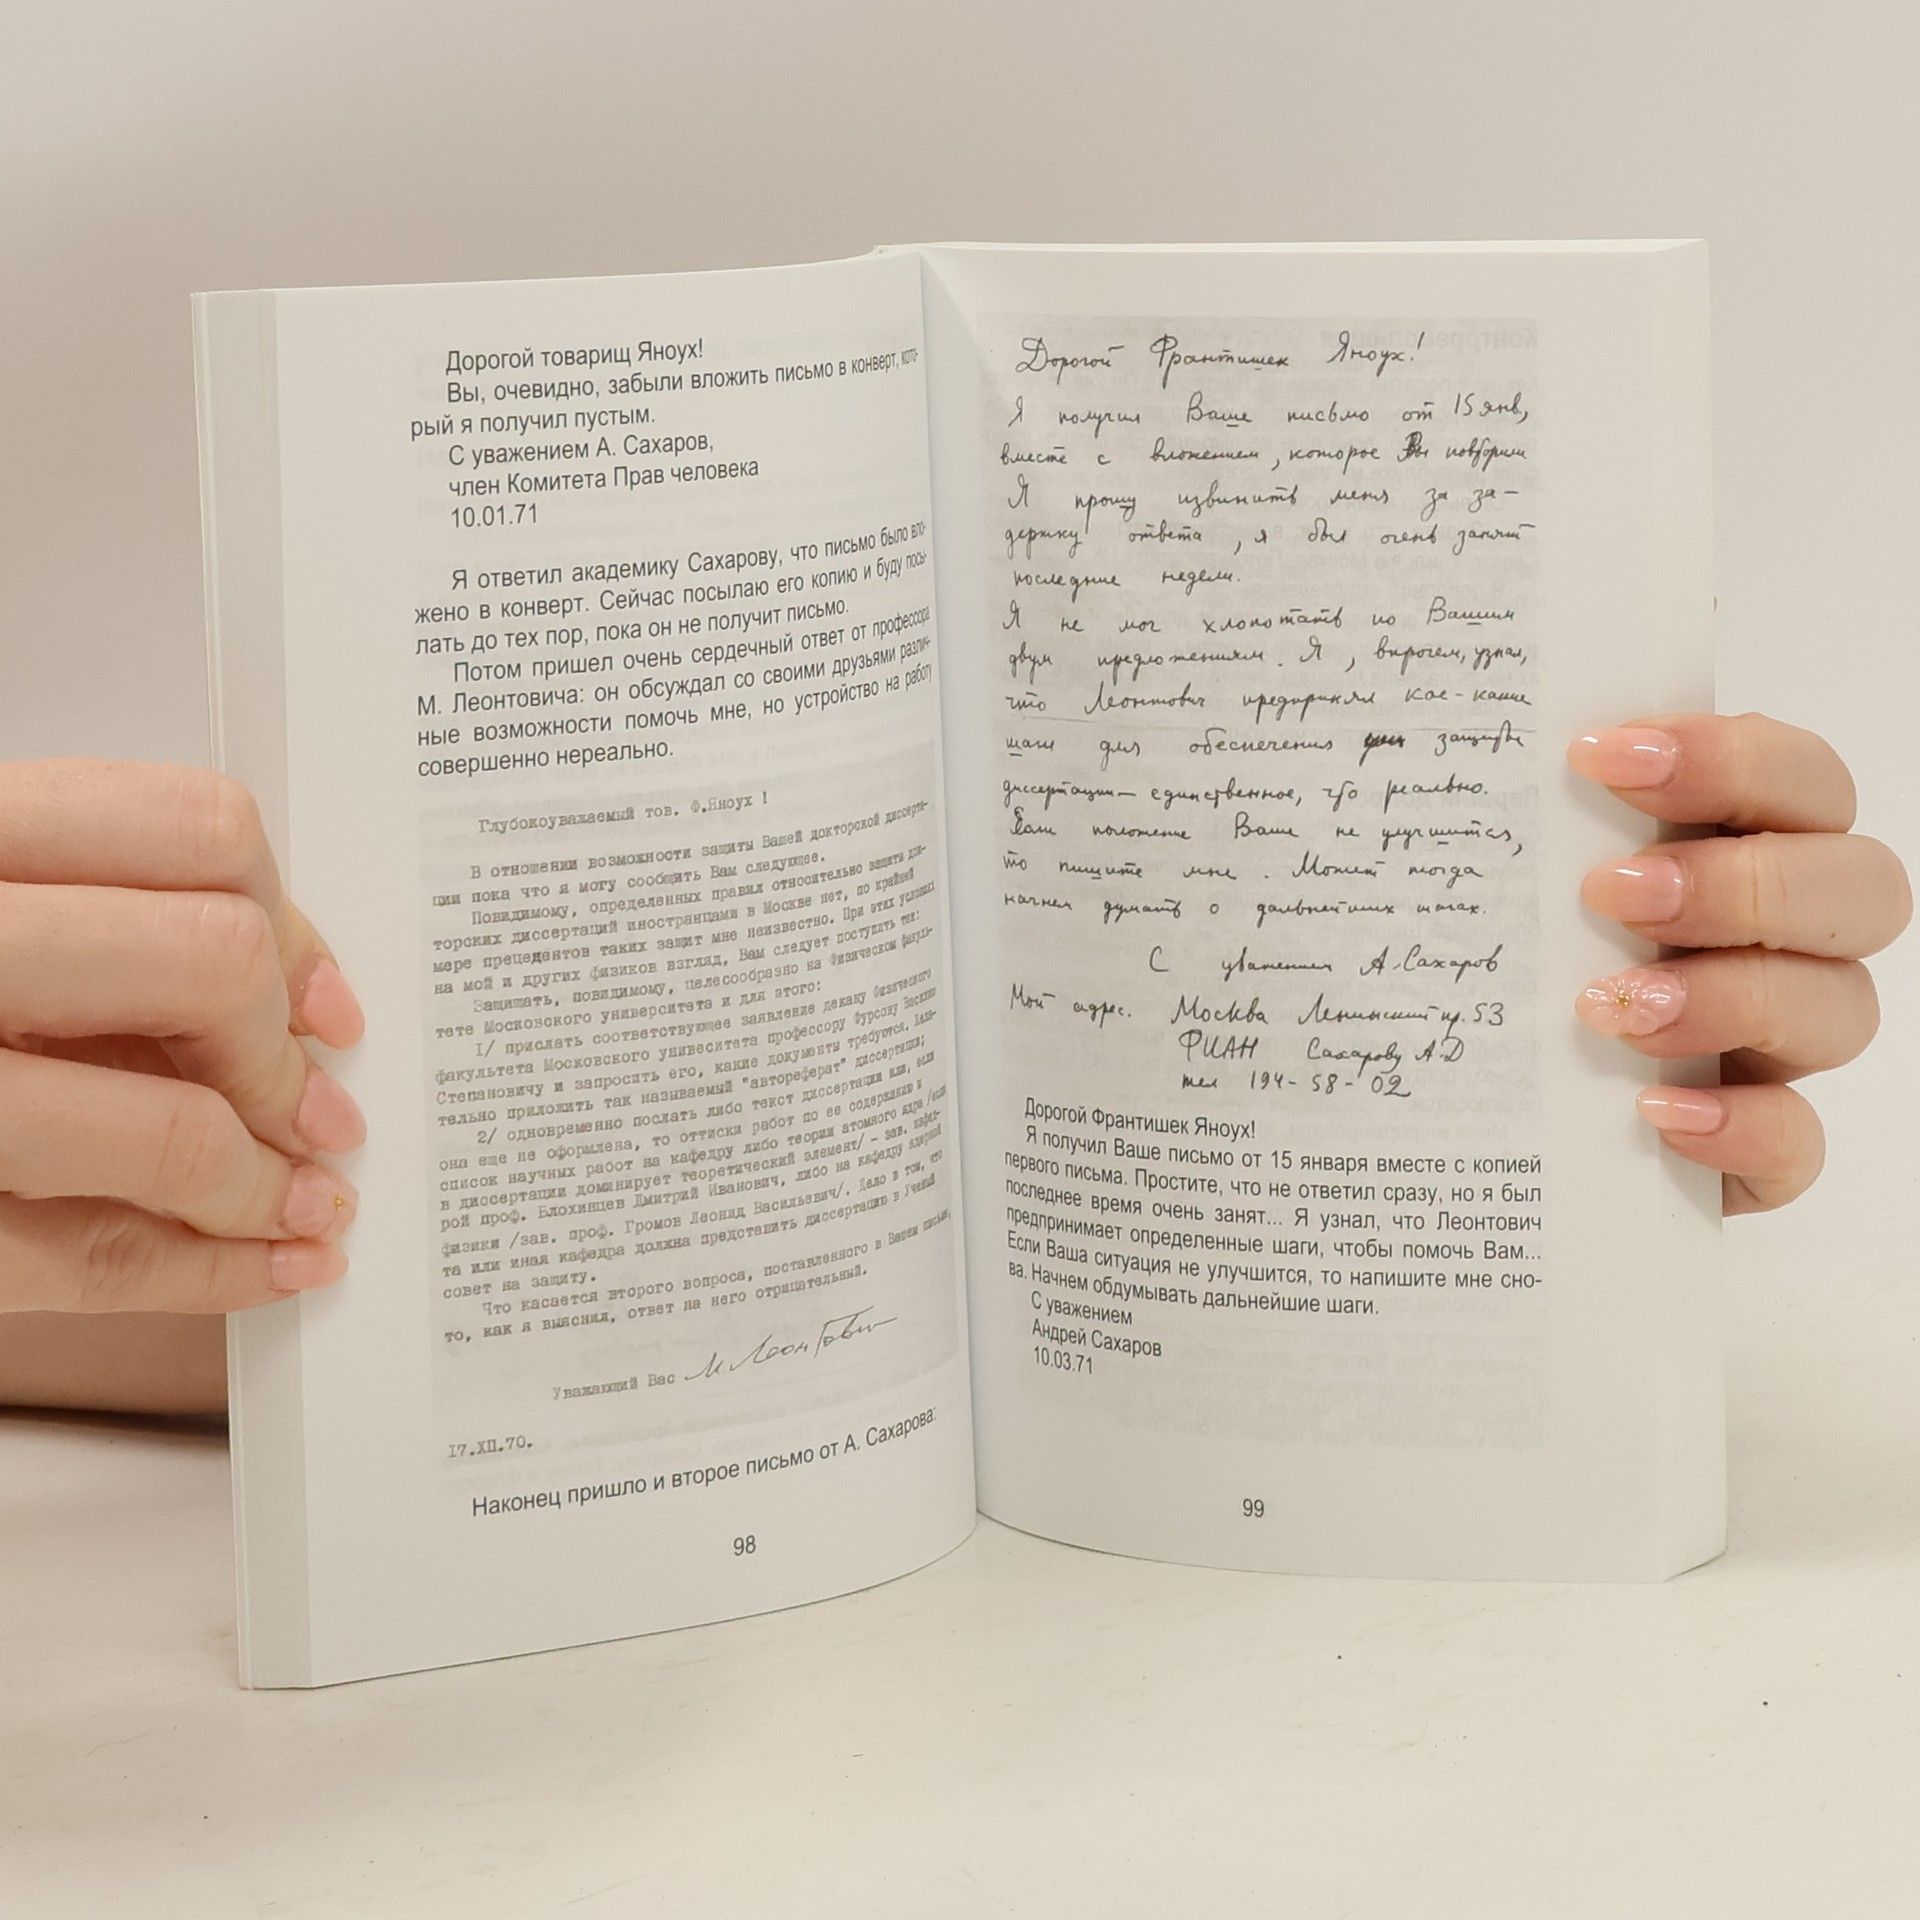 Дорогой товарищ Яноух!
Вы, очевидно, забыли вложить письмо в конверт, кото-
рый я получил пустым.
С уважением А. Сахаров,
член Комитета Прав человека
10.01.71
Я ответил академику Сахарову, что письмо было вло-
жено в конверт. Сейчас посылаю его копию и буду посы-
лать до тех пор, пока он не получит письмо.
Потом пришел очень сердечный ответ от профессора
М. Леонтовича: он обсуждал со своими друзьями различ-
ные возможности помочь мне, но устройство на работу
совершенно нереально.
Глубокоуважаемый тов. Ф.Яноух !
В отношении возможности защиты Вашей докторской диссерта-
ции пока что я могу сообщить Вам следующее.
Повидимому, определенных правил относительно защиты док-
торских диссертаций иностранцами в Москве нет, по крайней
мере прецедентов таких защит мне неизвестно. При этих условиях
на мой и других физиков взгляд, Вам следует поступить так:
Защищать, повидимому, целесообразно на Физическом факуль-
тете Московского университета и для этого:
1/ прислать соответствующее заявление декану Физического
факультета Московского унивеситета профессору Фурсову Василию
Степановичу и запросить его, какие документы требуются. Жела-
тельно приложить так называемый "автореферат" диссертации;
2/ одновременно послать либо текст диссертации или, если
она еще не оформлена, то оттиски работ по ее содержанию и
список научных работ на кафедру либо теории атомного ядра /если
в диссертации доминирует теоретический элемент/ – зав. кафед-
рой проф. Блохинцев Дмитрий Иванович, либо на кафедру ядерной
физики /зав. проф. Громов Леонид Васильевич/. Дело в том, что
та или иная кафедра должна представить диссертацию в Ученый
совет на защиту.
Что касается второго вопроса, поставленного в Вашем письме,
то, как я выяснил, ответ на него отрицательный.
Уважающий Вас М. Леонтович
17.XII.70.
Наконец пришло и второе письмо от А. Сахарова:
98
Дорогой Франтишек Яноух!
Я получил Ваше письмо от 15 янв,
вместе с вложением, которое Вы повторили
Я прошу извинить меня за за-
держку ответа, я был очень занят
последние недели.
Я не мог хлопотать по Вашим
двум предложениям. Я, впрочем, узнал,
что Леонтович предпринял кое-какие
шаги для обеспечения защиты
диссертации — единственное, что реально.
Если положение Ваше не улучшится,
то пишите мне. Может тогда
начнем думать о дальнейших шагах.
С уважением А.Сахаров
Мой адрес. Москва Ленинский пр. 53
ФИАН Сахарову А.Д
тел 194-58-02
Дорогой Франтишек Яноух!
Я получил Ваше письмо от 15 января вместе с копией
первого письма. Простите, что не ответил сразу, но я был
последнее время очень занят... Я узнал, что Леонтович
предпринимает определенные шаги, чтобы помочь Вам...
Если Ваша ситуация не улучшится, то напишите мне сно-
ва. Начнем обдумывать дальнейшие шаги.
С уважением
Андрей Сахаров
10.03.71
99